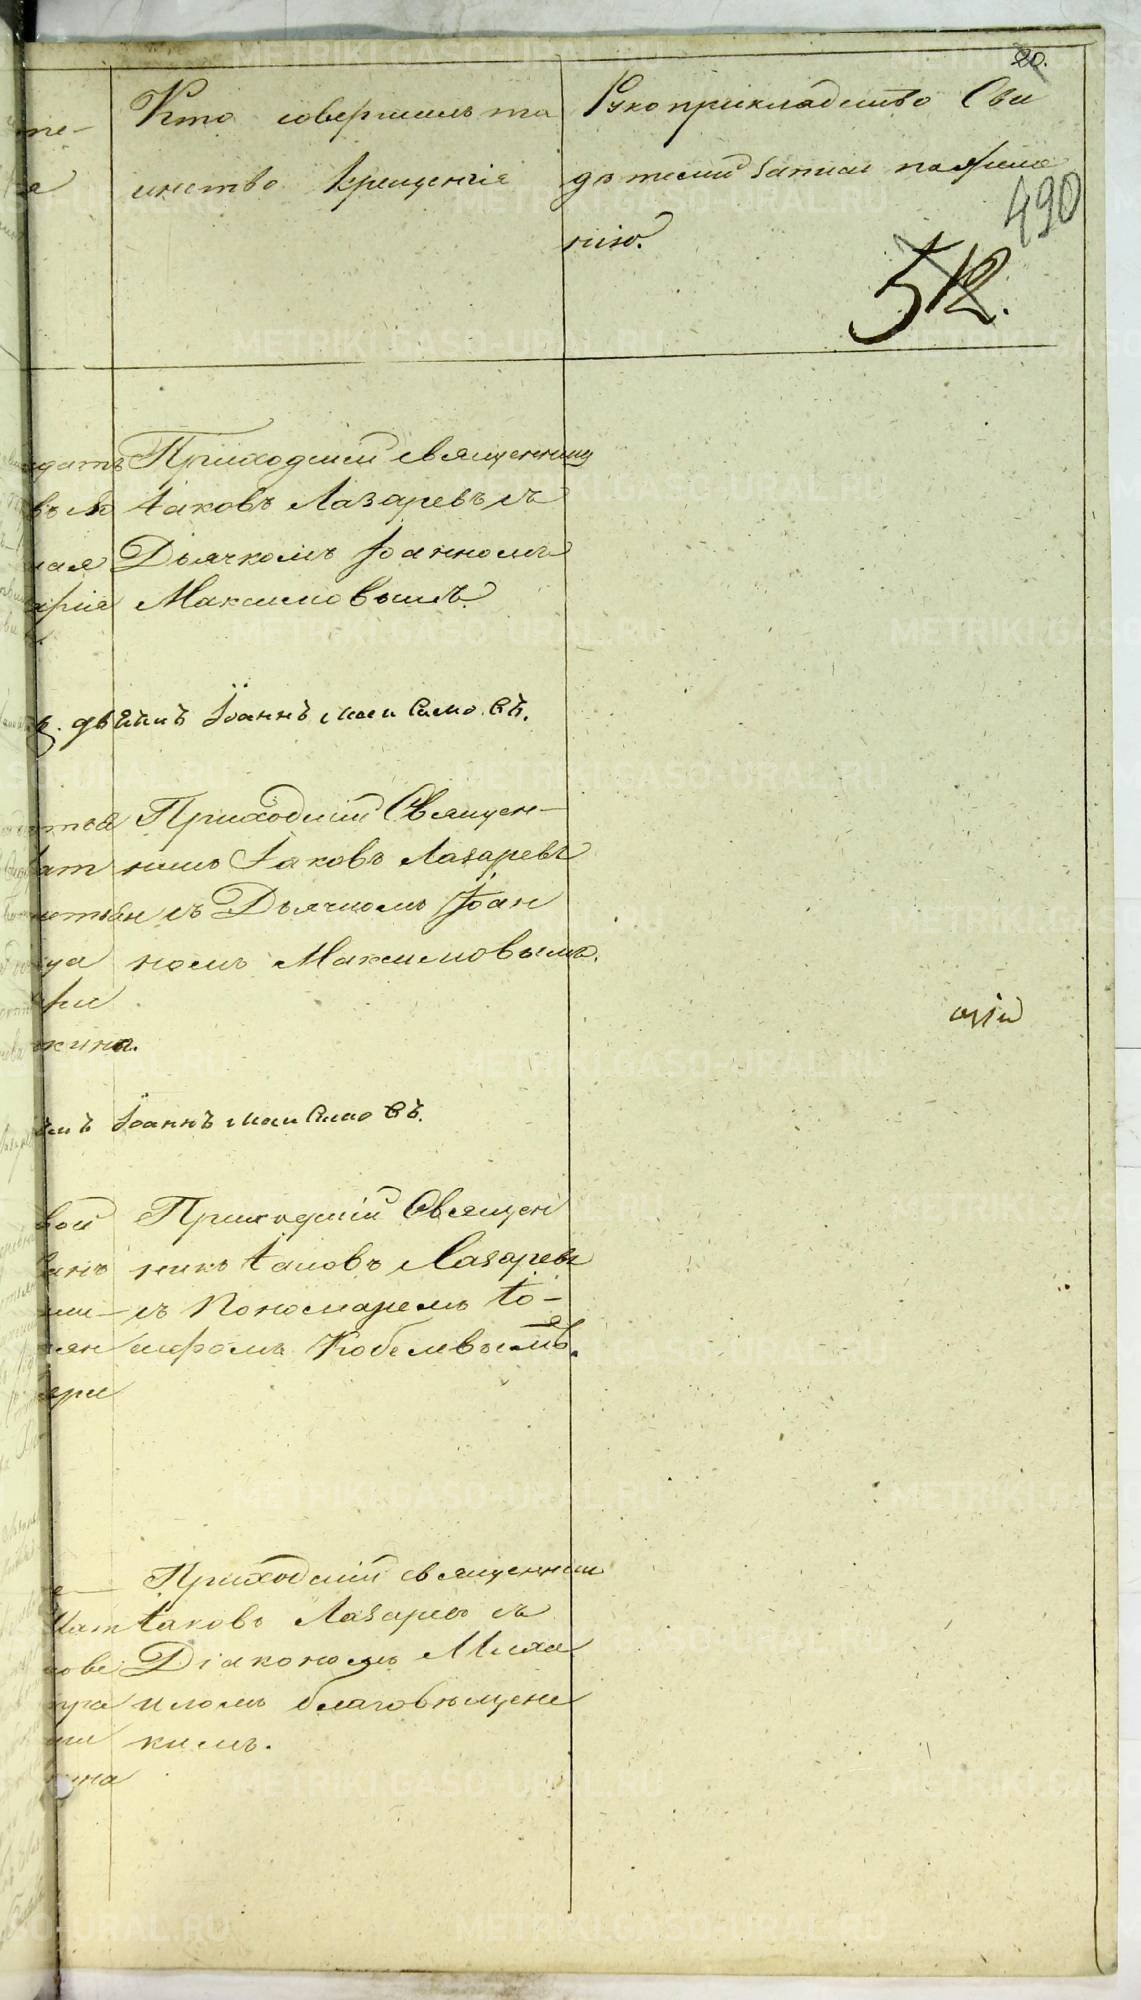 20.
490
512.
Кто совершилъ та
инство крещенія
Рукоприкладство Сви
дѣтелей записи по жела
нію.
Приходскій священник
Іаковъ Лазаревъ съ
Дьячкомъ Іоанномъ
Максимовымъ.
Іоаннъ Максимовъ.
Приходскій Священ-
никъ Іаковъ Лазаревъ
съ Дьячкомъ Іоан
номъ Максимовымъ.
Іоаннъ Максимовъ.
вой Приходскій Священ
никъ Іаковъ Лазаревъ
съ Пономаремъ Іо-
сифомъ Кобелевымъ.
Приходскій священник
Іаковъ Лазаревъ съ
Діакономъ Миха
иломъ благовѣщенс
кимъ.
METRIKI.GASO-URAL.RU